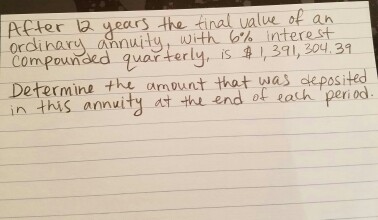 After 12 years the final value of an
ordinary annuity, with 6% interest
compounded quarterly, is $1,391,304.39
Determine the amount that was deposited
in this annuity at the end of each period.